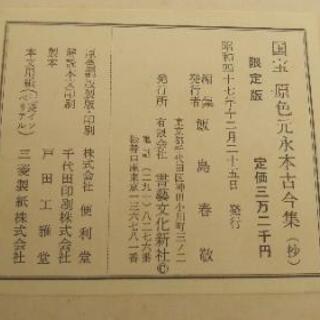 国宝 原色元永本古今集（抄）
限定版 定価三万二千円
昭和四十七年十二月二十五日 発行
編集 発行者 飯島春敬
東京都千代田区神田小川町三ノ二
発行所 有限会社 書藝文化新社©
電話（二九一）八二七六番
振替口座東京一三六七八一番
原色部版製版・印刷 株式会社 便利堂
解説本文印刷 千代田印刷株式会社
製本 戸田工雅堂
三菱製紙株式会社